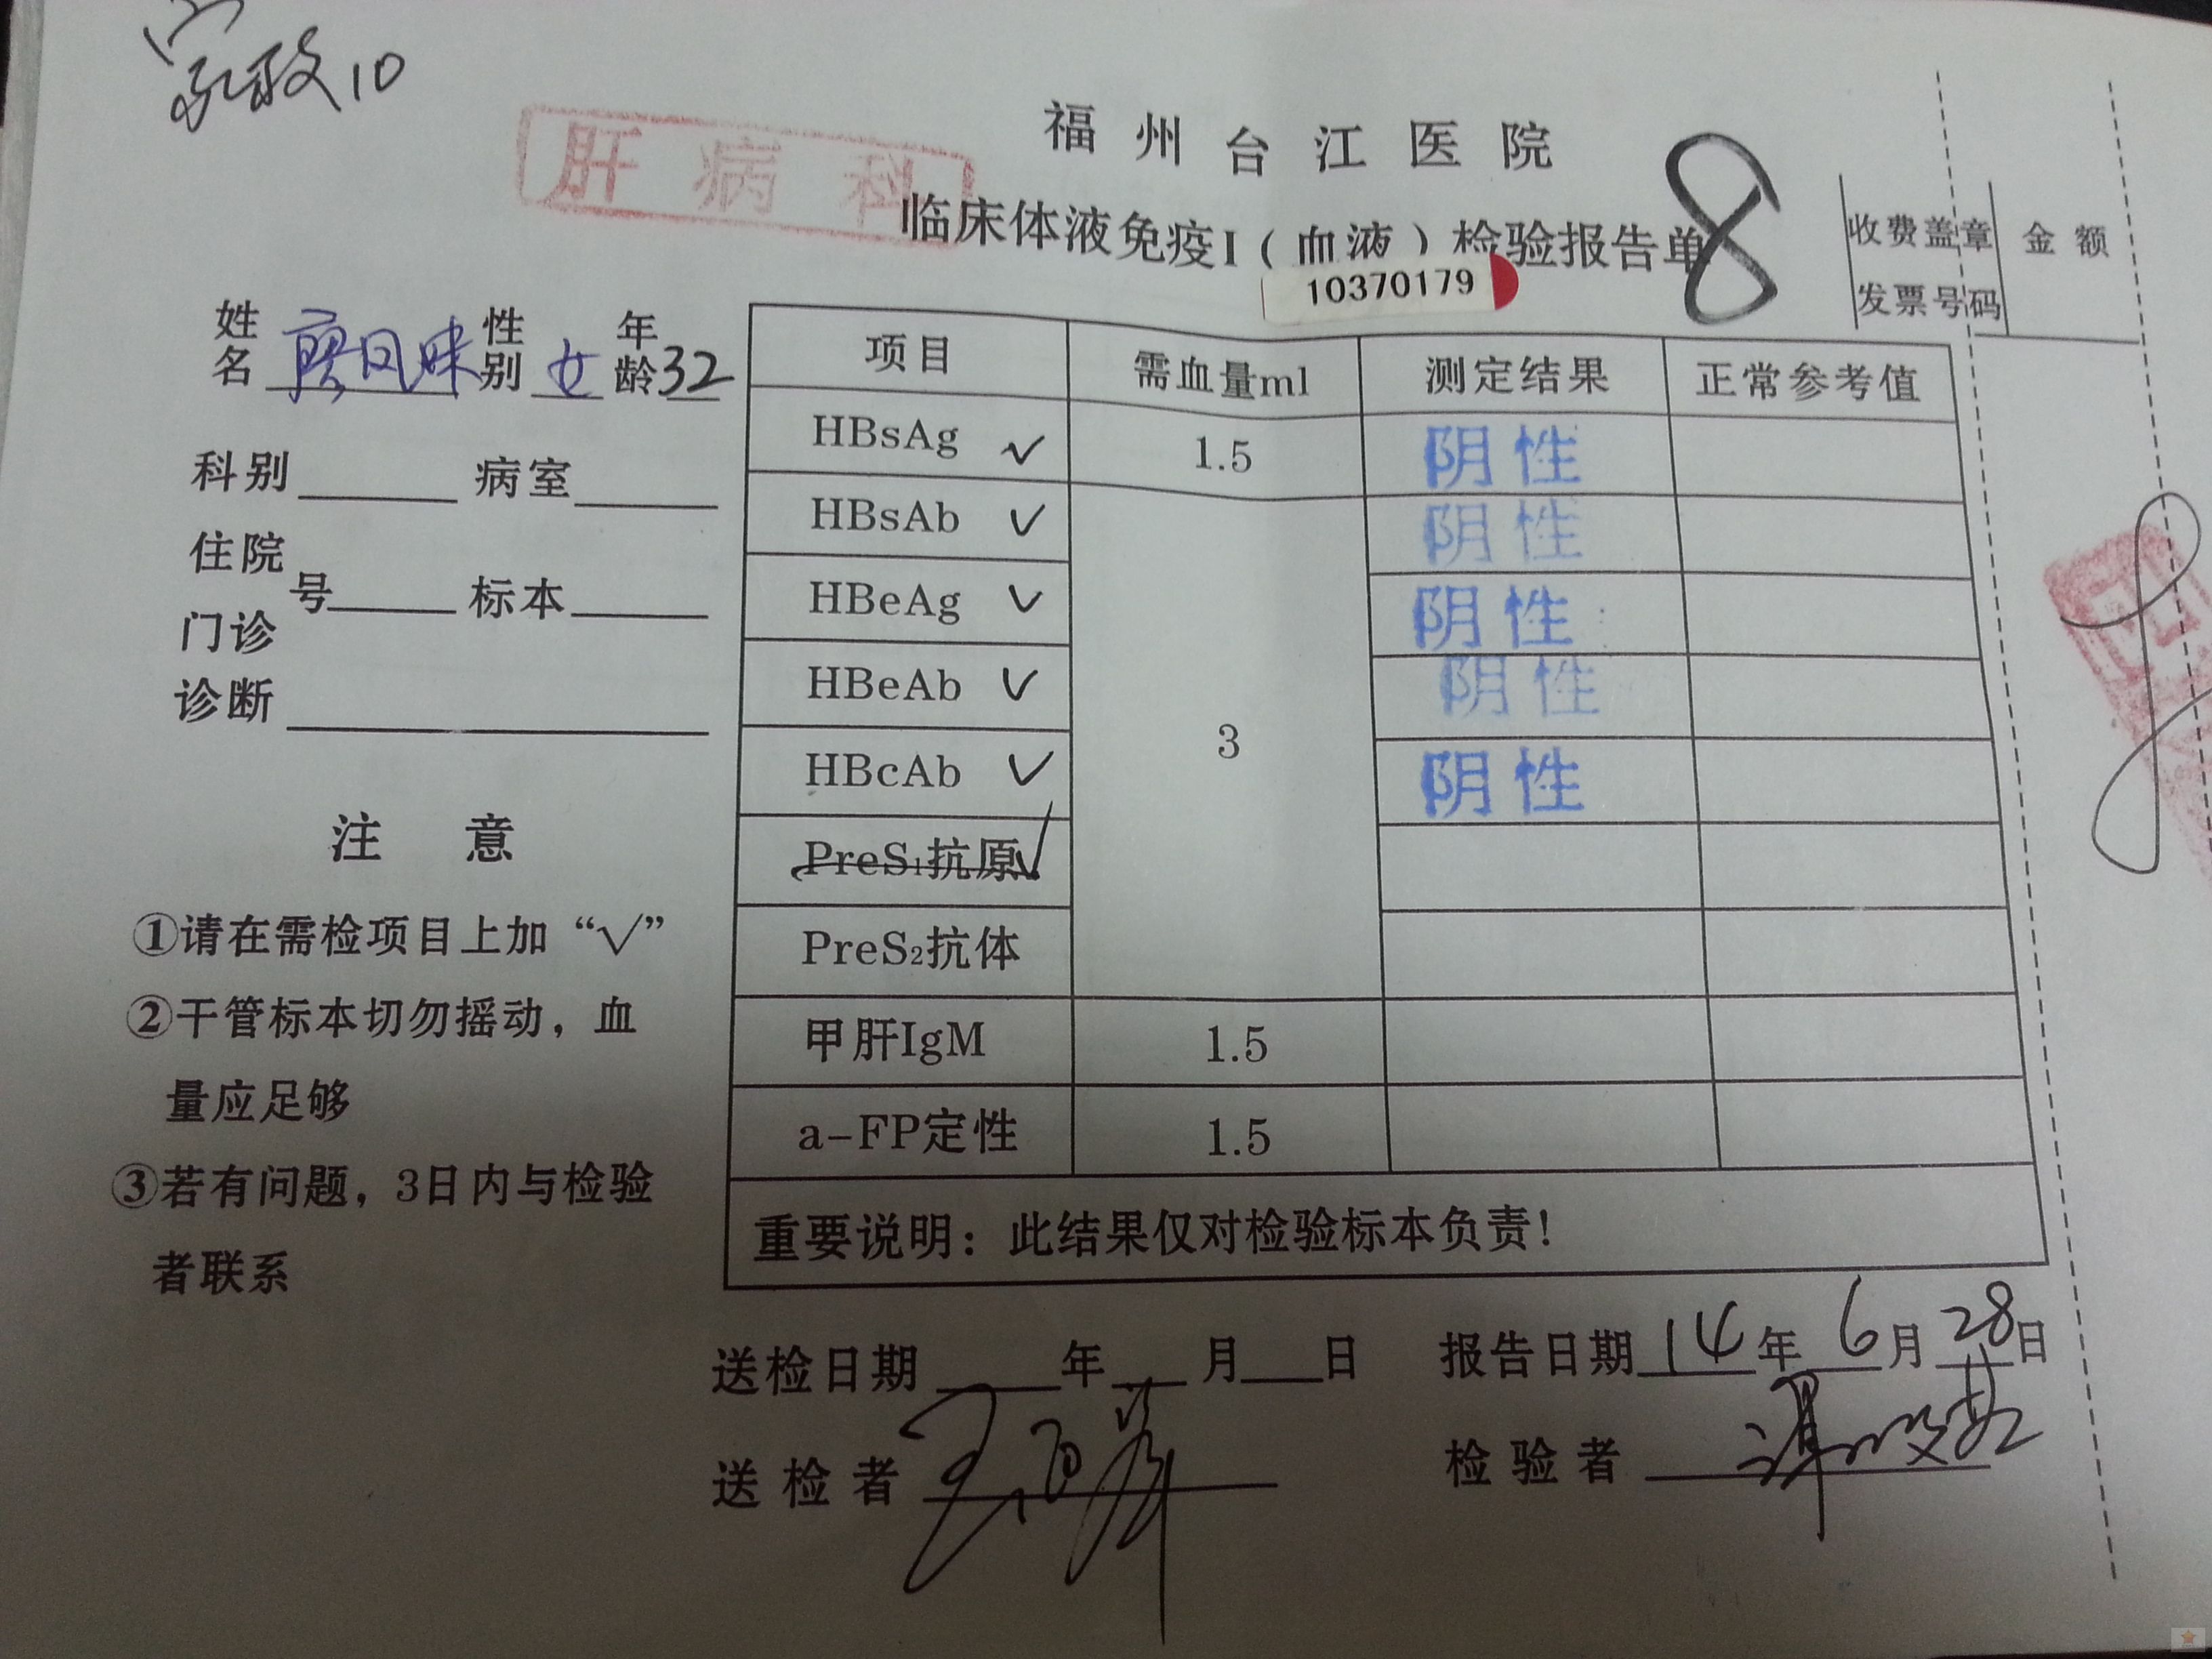 家政10
肝病科
福州台江医院
临床体液免疫I（血液）检验报告单
8
10370179
收费盖章 金额
发票号码
姓名 性别 女 年龄 32
科别 病室
住院
号 标本
门诊
诊断
注意
①请在需检项目上加“√”
②干管标本切勿摇动，血
量应足够
③若有问题，3日内与检验
者联系
项目 需血量ml 测定结果 正常参考值
HBsAg √ 1.5 阴性
HBsAb √ 阴性
HBeAg √ 阴性
HBeAb √ 阴性
HBcAb √ 3 阴性
PreS₁抗原 √
PreS₂抗体
甲肝IgM 1.5
a-FP定性 1.5
重要说明：此结果仅对检验标本负责！
送检日期 年 月 日 报告日期 14年 6月 28日
送检者 检验者